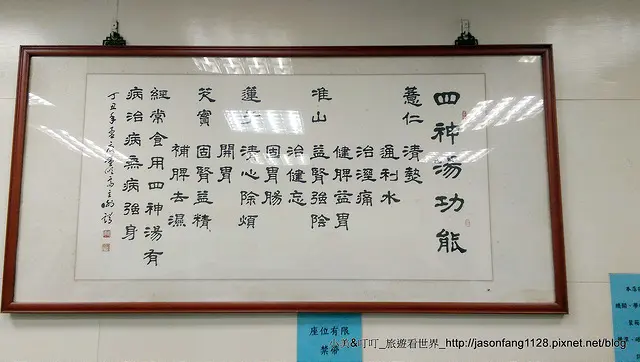 四神湯功能
薏仁 清熱
通利水
治溼痛
健脾益胃
淮山 益腎強陰
治健忘
固胃腸
蓮 清心除煩
開胃
芡實 固腎益精
補脾去濕
經常食用四神湯有
病治病無病強身
丁丑年
座位有限
禁帶
小美&叮叮_旅遊看世界_http://jasonfang1128.pixnet.net/blog